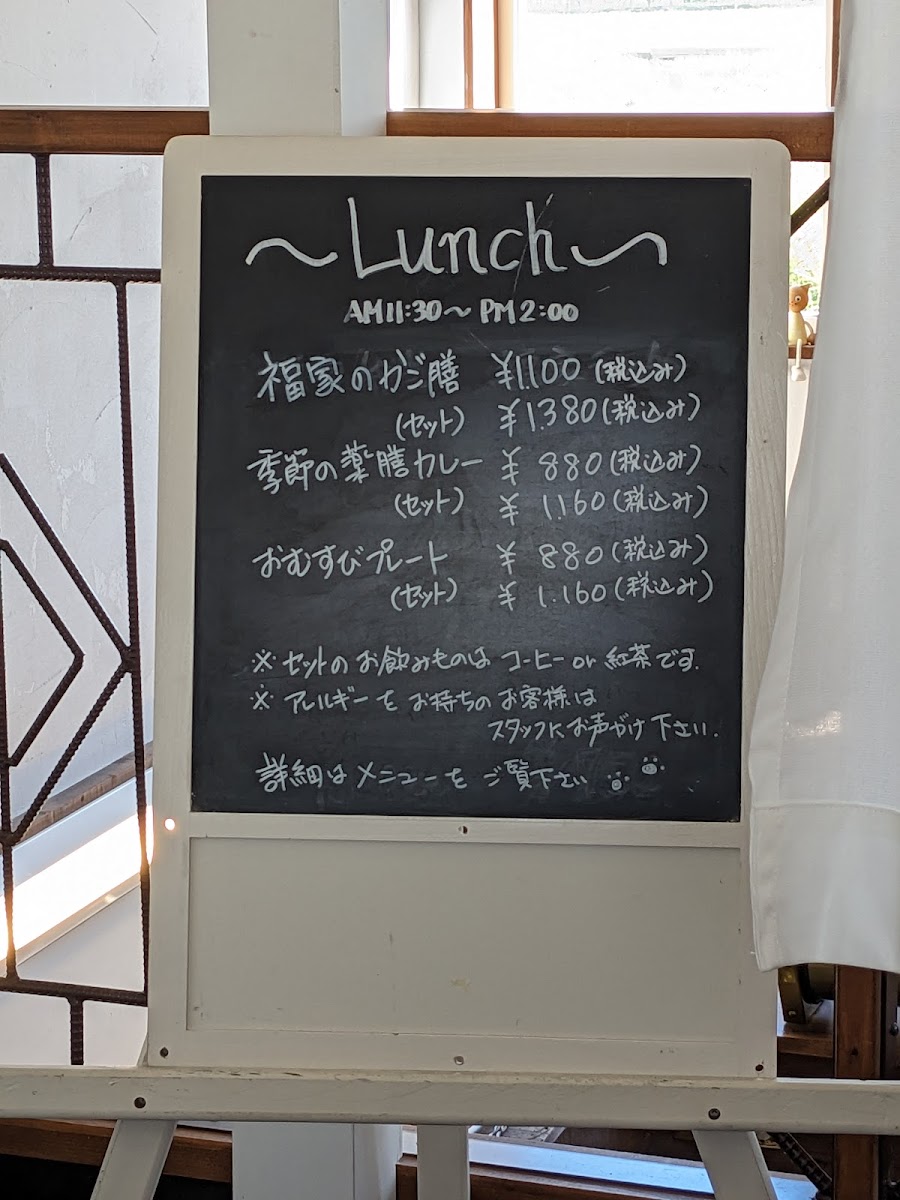 ～Lunch～
AM11:30～PM2:00
福家のカジ膳 ¥1.100(税込み)
(セット) ¥1.380(税込み)
季節の薬膳カレー ¥880(税込み)
(セット) ¥1.160(税込み)
おむすびプレート ¥880(税込み)
(セット) ¥1.160(税込み)
※セットのお飲みものはコーヒーor紅茶です.
※アレルギーをお持ちのお客様は
スタッフにお声がけ下さい.
詳細はメニューをご覧下さい